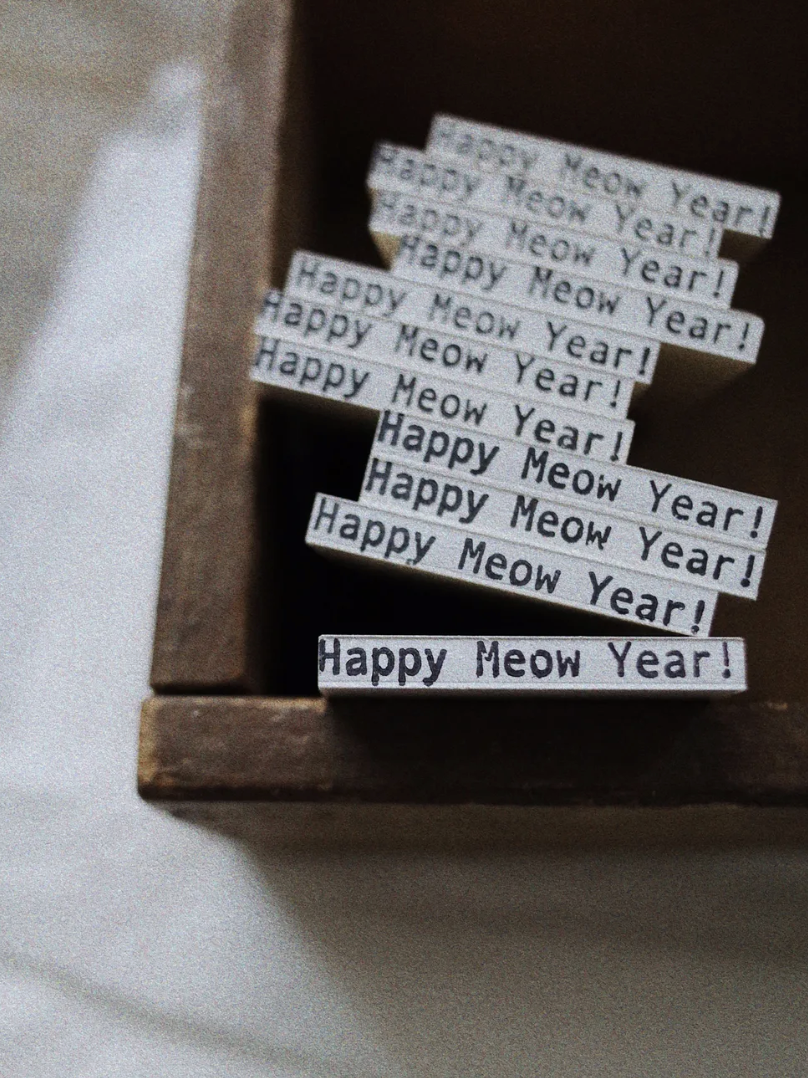 Happy Meow Year!
Happy Meow Year!
Happy Meow Year!
Happy Meow Year!
Happy Meow Year!
Happy Meow Year!
Happy Meow Year!
Happy Meow Year!
Happy Meow Year!
Happy Meow Year!
Happy Meow Year!